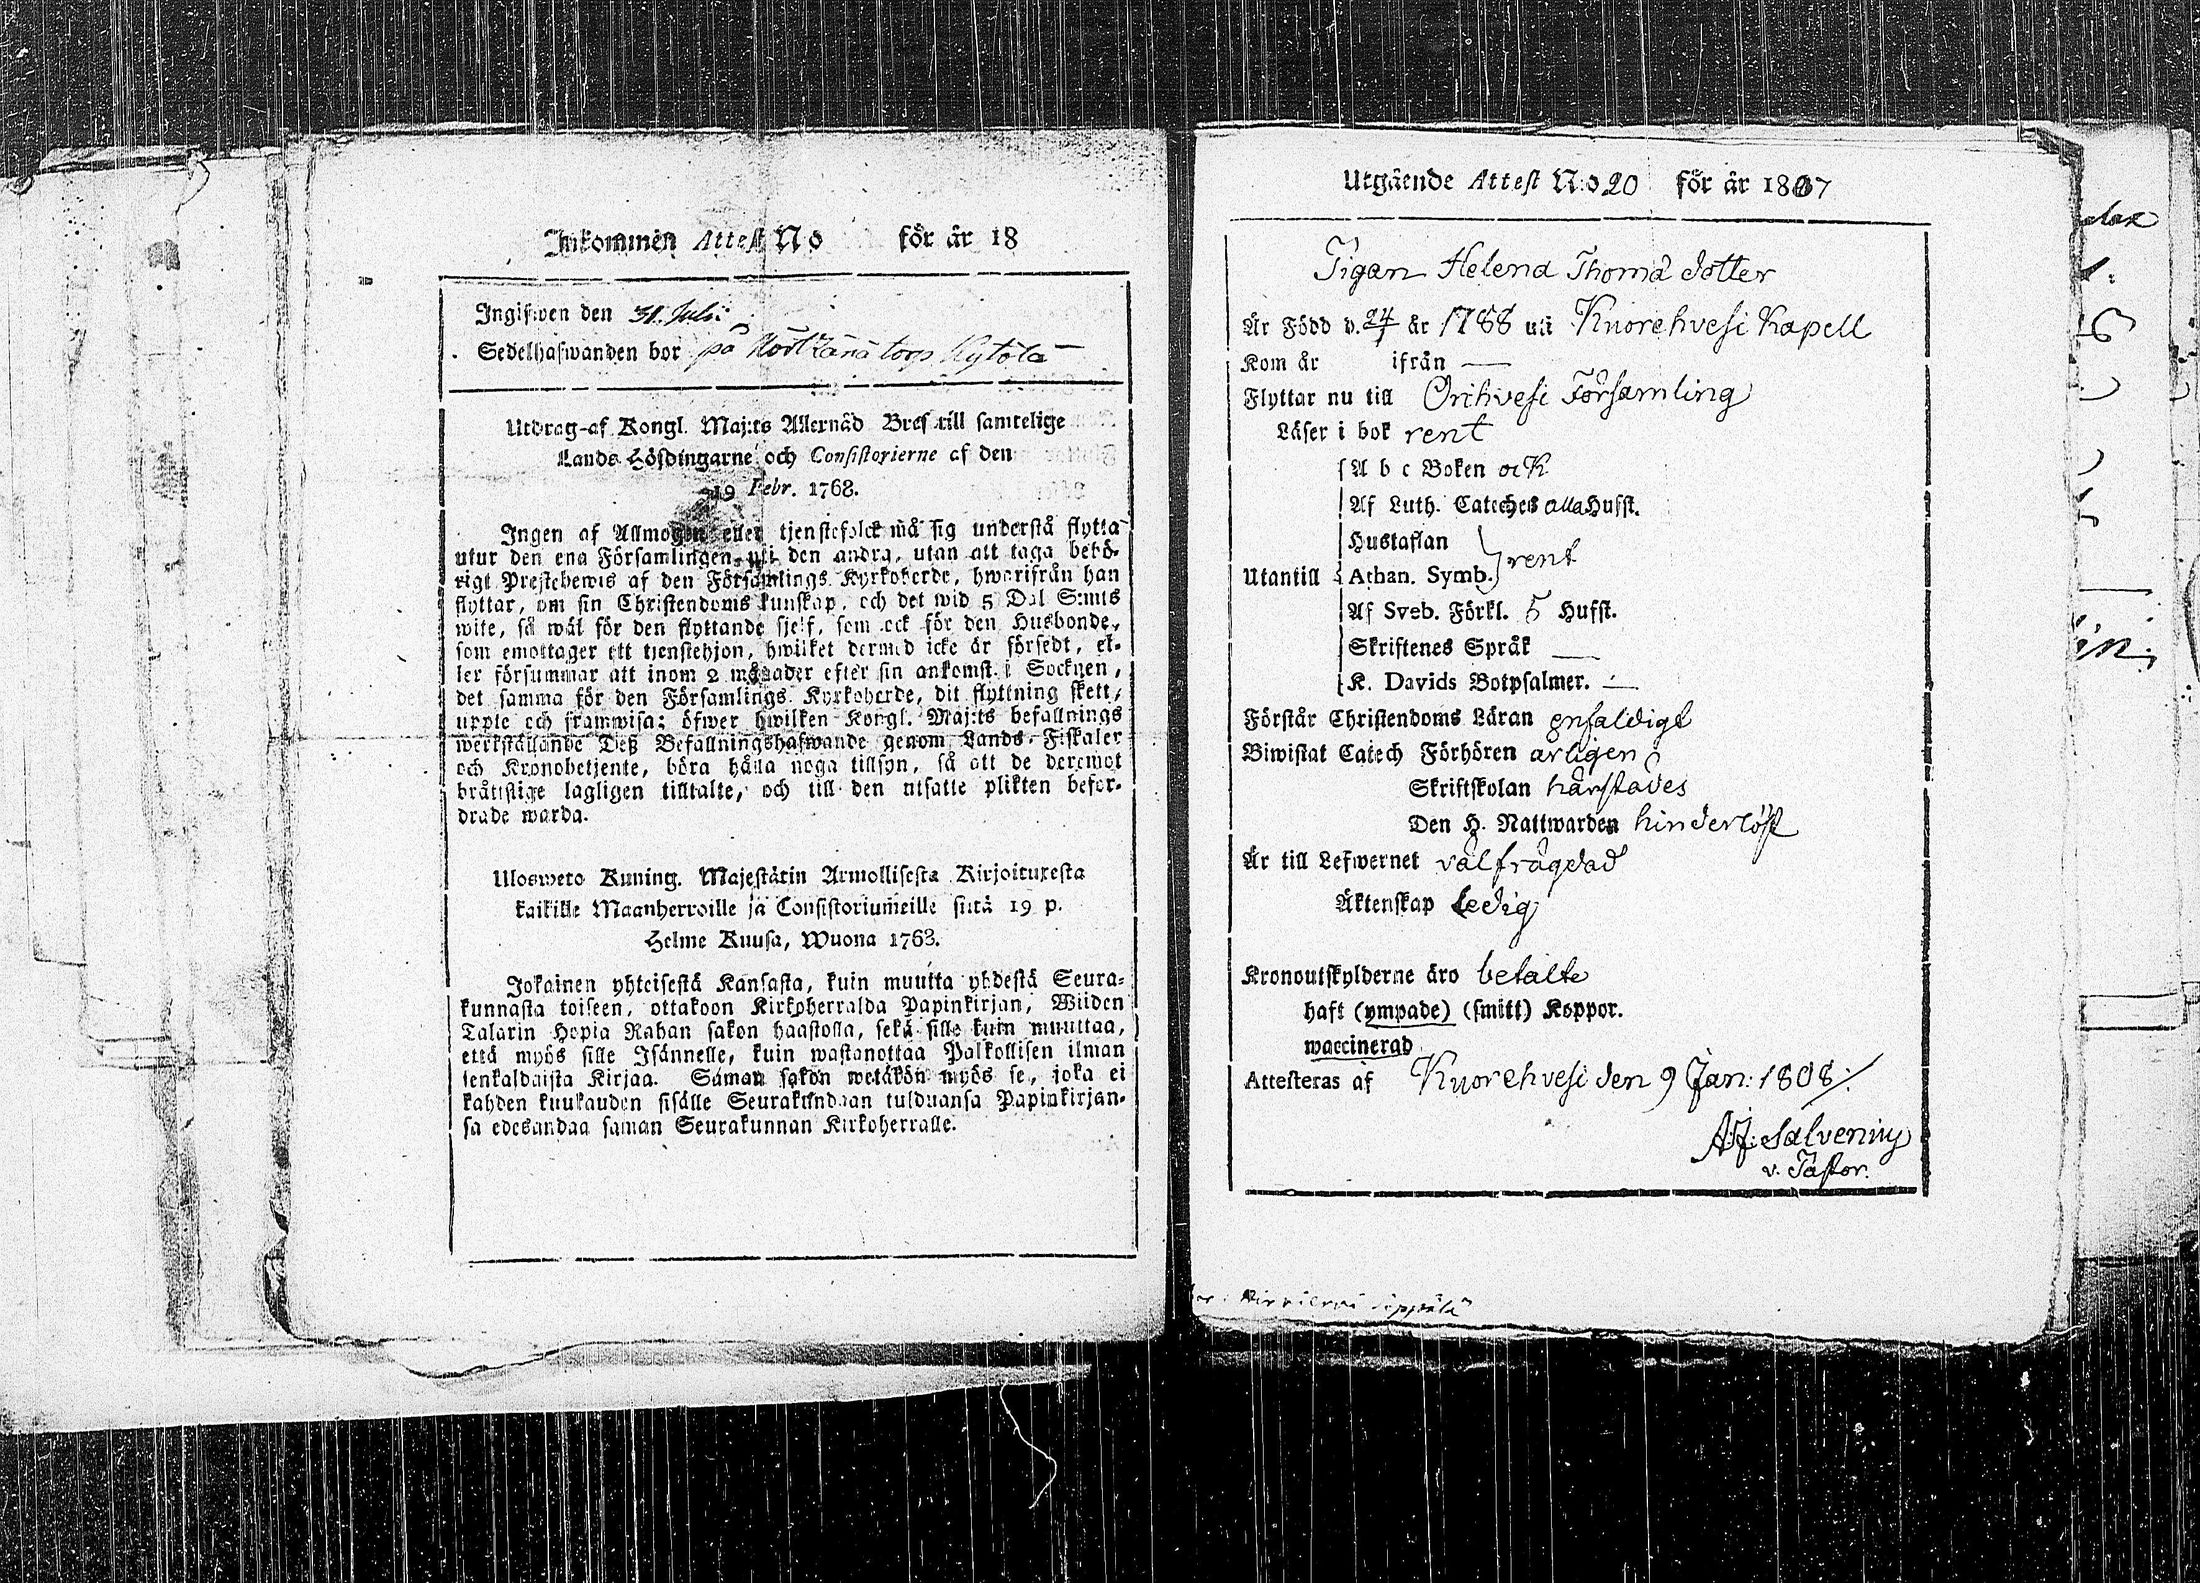 Inkommen Attest No för år 18
Ingifwen den 31. Julii
Sedelhafwanden bor på torp Kytölä
Utdrag af Kongl. Maj:ts Allernåd Bref till samtelige
Lands Höfdingarne och Consistorierne af den
19 Febr. 1768.
Ingen af Allmogen eller tjenstefolck må sig understå flytta
utur den ena Församlingen uti den andra, utan att taga behö-
rigt Prestebewis af den Församlings Kyrkoherde, hwarifrån han
flyttar, om sin Christendoms kunskap, och det wid 5 Dal S:mts
wite, så wäl för den flyttande sjelf, som ock för den Husbonde,
som emottager ett tjenstehjon, hwilket dermed icke är försedt, el-
ler försummar att inom 2 månader efter sin ankomst i Socknen,
det samma för den Församlings Kyrkoherde, dit flyttning skett,
uppte och framwisa; öfwer hwilken Kongl. Maj:ts befallnings
werkställande Deß Befallningshafwande genom Lands-Fiskaler
och Kronobetjente, böra hålla noga tillsyn, så att de deremot
bråttslige lagligen tilltalte, och till den utsatte plikten befor-
drade warda.
Ulosweto Kuning. Majestätin Armollisesta Kirjoituxesta
kaikille Maanherroille ja Consistoriumeille siitä 19 p.
Helme Kuusa, Wuona 1768.
Jokainen yhteisestä Kansasta, kuin muutta yhdestä Seura-
kunnasta toiseen, ottakoon Kirkoherralda Papinkirjan, Wiiden
Talarin Hopia Rahan sakon haastolla, sekä sille kuin muuttaa,
että myös sille Isännelle, kuin wastanottaa Palkollisen ilman
senkaldaista Kirjaa. Saman sakon wetäkön myös se, joka ei
kahden kuukauden sisälle Seurakundaan tulduansa Papinkirjan-
sa edesandaa saman Seurakunnan Kirkoherralle.
Utgående Attest N:o 20 för år 1807
Pigan Helena Thomä dotter
Är Född d. 24/7 år 1788 uti Kuorehvesi Kapell
Kom år ifrån —
Flyttar nu till Orihvesi Församling
Läser i bok rent
A b c Boken ock
Af Luth. Cateches alla Hufst.
Hustaflan
Utantill Athan. Symb. rent
Af Sveb. Förkl. 5 Hufst.
Skriftenes Språk —
K. Davids Botpsalmer. —
Förstår Christendoms Läran enfaldigt
Biwistat Catech Förhören årligen
Skriftskolan härstädes
Den H. Nattwarden hinderlöst
Är till Lefwernet välfrägdad
Äktenskap ledig
Kronoutskylderne äro betalte
haft (ympade) (smitt) Koppor.
waccinerad
Attesteras af Kuorehvesi den 9 Jan: 1808:/
A:J: Salvenius
v. Pastor.